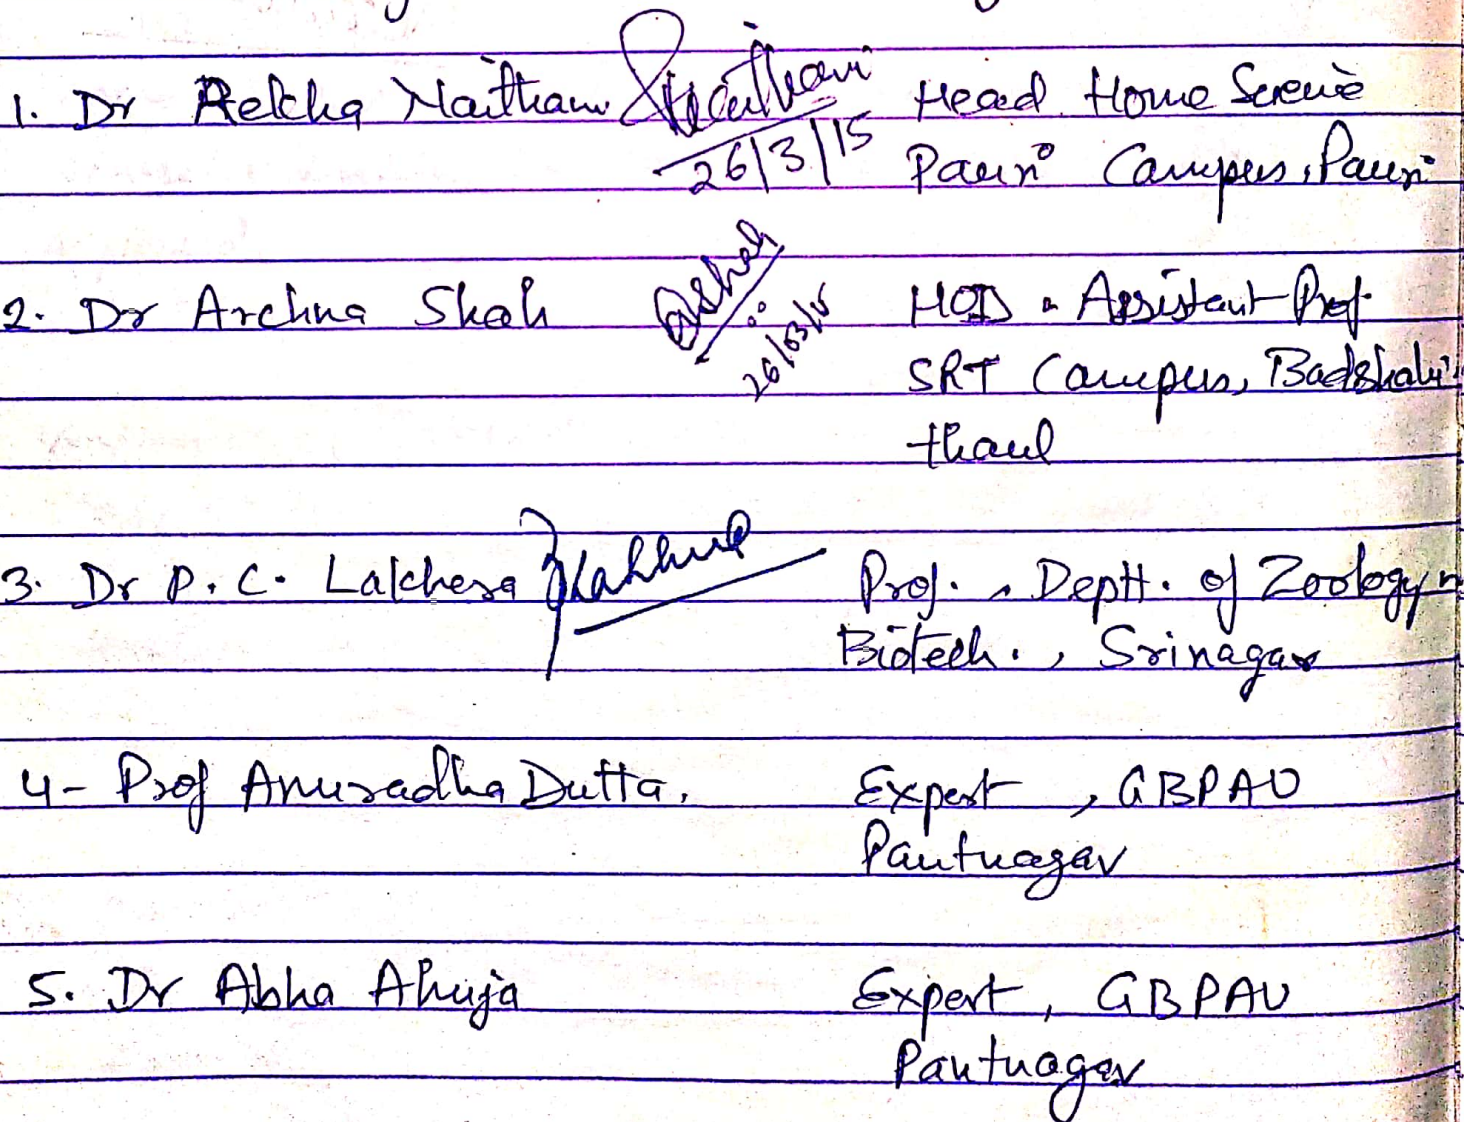 1. Dr Rekha Naithani Rnaithani Head Home Science
26/3/15 Pauri Campus, Pauri
2. Dr Archna Shah AShah HOD & Assistant Prof.
26/03/15 SRT Campus, Badshahi
thaul
3. Dr P. C. Lakhera Prof. , Deptt. of Zoology n
Biotech. , Srinagar
4- Prof Anuradha Dutta. Expert , GBPAU
Pantnagar
5. Dr Abha Ahuja Expert , GBPAU
Pantnagar